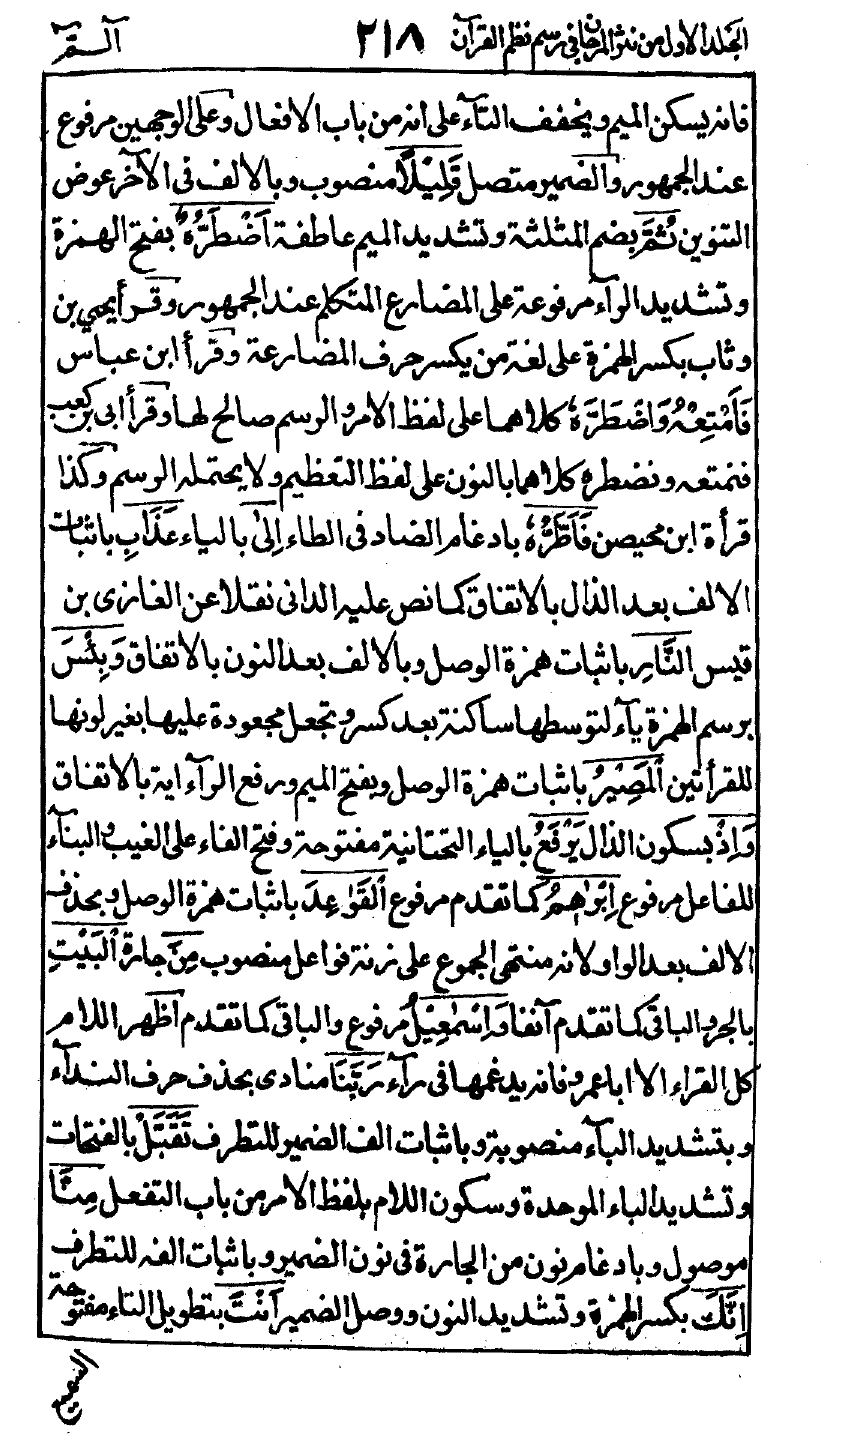 المجلد الاول من نثر المرجان في رسم نظم القرآن ٢١٨ آلـمّ
فانه يسكن الميم ويخفف التآء على انه من باب الافعال وعلى الوجهين مرفوع
عند الجمهور والضمير متصل قَلِيْلًا منصوب وبالالف في الآخر عوض
التنوين ثُمَّ بضم المثلثة وتشديد الميم عاطفة اَضْطَرُّهٗ بفتح الهمزة
وتشديد الرآء مرفوعة على المضارع المتكلم عند الجمهور وقرأ يحيي بن
وثاب بكسر الهمزة على لغة من يكسر حرف المضارعة وقرأ ابن عباس
فَاَمْتِعْهُ وَاضْطَرَّهٗ كلاهما على لفظ الامر والرسم صالح لها وقرأ ابي بن كعب
فنمتعه ونضطره كلاهما بالنون على لفظ التعظيم ولا يحتمله الرسم وكذا
قرأة ابن محيصن فَاَطَّرُّهٗ بادغام الضاد في الطاء اِلىٰ بالياء عَذَابِ باثبات
الالف بعد الذال بالاتفاق كما نص عليه الداني نقلا عن الغازي بن
قيس النَّارِ باثبات همزة الوصل وبالالف بعد النون بالاتفاق وَبِئْسَ
برسم الهمزة يآء لتوسطها ساكنة بعد كسر وتجعل مجعودة عليها بغير لونها
للقرأتين الْمَصِيْرُ باثبات همزة الوصل وبفتح الميم ورفع الرآء اية بالاتفاق
وَاِذْ بسكون الذال يَرْفَعُ بالياء التحتانية مفتوحة وفتح الفاء على الغيب والبنآء
للفاعل مرفوع اِبْرٰهٖمُ كما تقدم مرفوع الْقَوَاعِدَ باثبات همزة الوصل وبحذف
الالف بعد الواو لانه منتهى الجموع على زنة فواعل منصوب مِنَ جارة الْبَيْتِ
بالجر والباقي كما تقدم آنفا وَاِسْمٰعِيْلُ مرفوع والباقي كما تقدم اظهر اللام
كل القراء الا ابا عمرو فانه يدغمها في رآء رَبَّنَا منادى بحذف حرف الندآء
وبتشديد البآء منصوبة وباثبات الف الضمير للتطرف تَقَبَّلْ بالفتحات
وتشديد الباء الموحدة وسكون اللام بلفظ الامر من باب التفعل مِنَّا
موصول وبادغام نون من الجارة في نون الضمير وباثبات الفه للتطرف
اِنَّكَ بكسر الهمزة وتشديد النون ووصل الضمير اَنْتَ بتطويل التاء مفتوحة
السميع